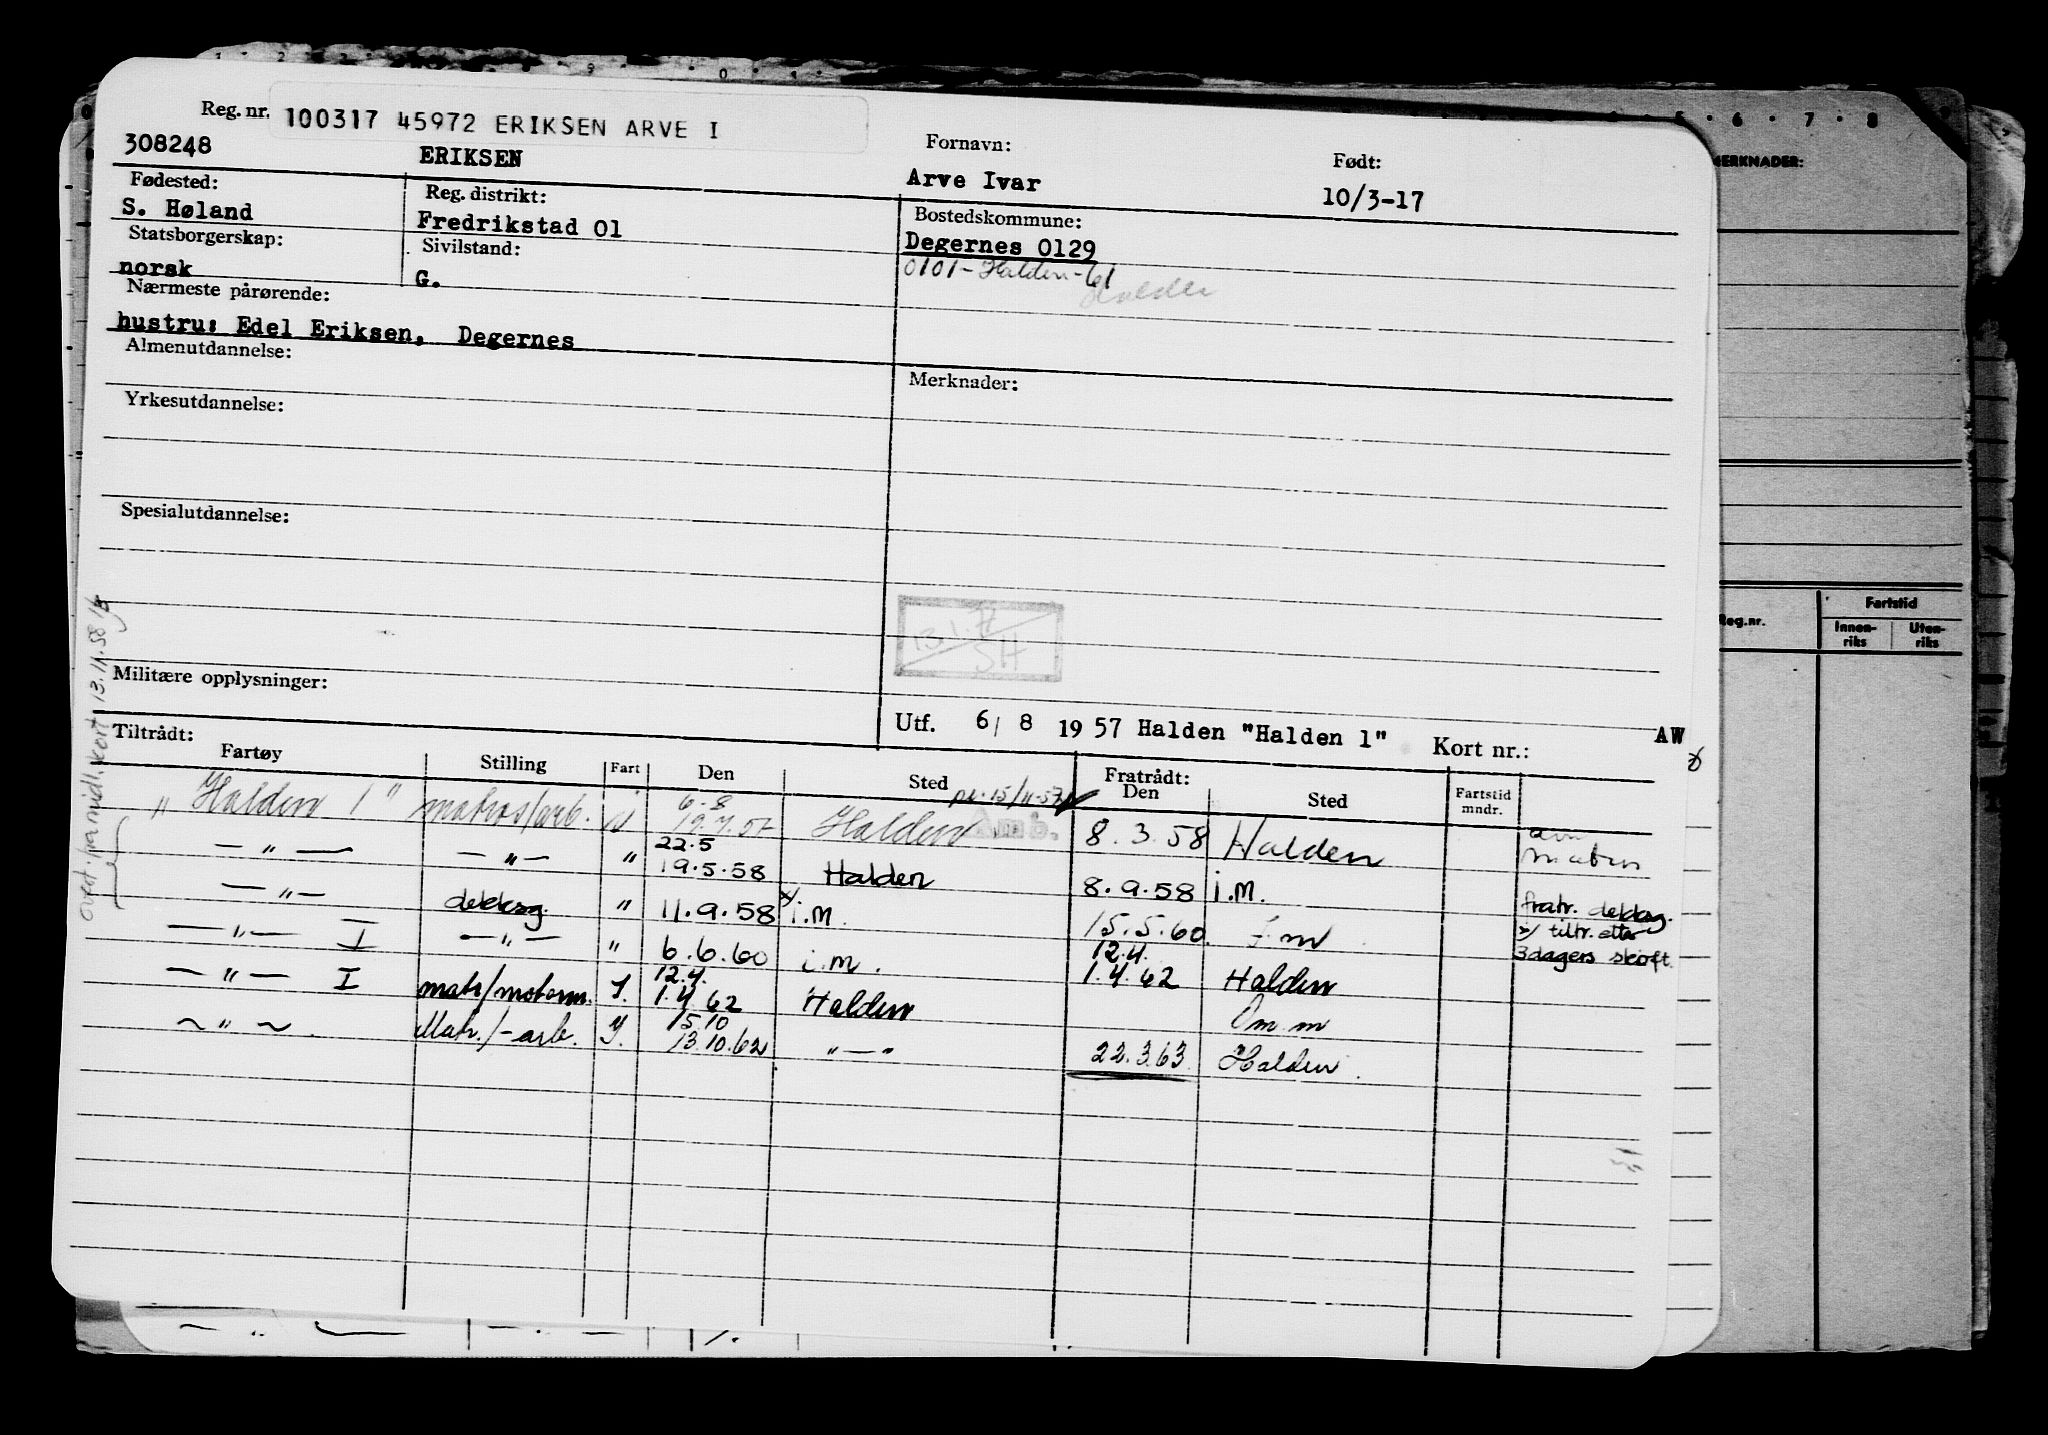 Reg. nr. 100317 45972 ERIKSEN ARVE I
308248 ERIKSEN
Fornavn: Født:
Arve Ivar 10/3-17
Fødested: Reg. distrikt: Bostedskommune:
S. Høland Fredrikstad 01 Degernes 0129
Statsborgerskap: Sivilstand: 0101-Halden-61
norsk G. Halden
Nærmeste pårørende:
hustru: Edel Eriksen, Degernes
Almenutdannelse: Merknader:
Yrkesutdannelse:
Spesialutdannelse:
13.1.71
SH
Militære opplysninger:
Utf. 6/ 8 1957 Halden "Halden 1" Kort nr.: AW
overf. fra midl. kort 13.11.58
Tiltrådt: Fratrådt:
Fartøy Stilling Fart Den Sted Den Sted Fartstid mndr.
pr. 15/11-57
6.8
"Halden 1" matros/arb. 19.7.57 Halden Amb. 8.3.58 Halden
22.5
— " — — " — " 19.5.58 Halden 8.9.58 i.m.
— " — dekksg. " 11.9.58 x) i.m. 15.5.60 fratr. dekksg.
— " — I — " — " 6.6.60 i.m. 12.4. x) tiltr. etter
1.4.62 Halden 3 dagers skoft.
— " — I matr/motorm. I. 12.4. 1.4.62 Halden Om. m
~ " ~ Matr./-arb. 15.10 13.10.62 " — " 22.3.63 Halden.
5 · 6 · 7 · 8
MERKNADER:
Reg.nr. Fartstid
Innen-riks Uten-riks